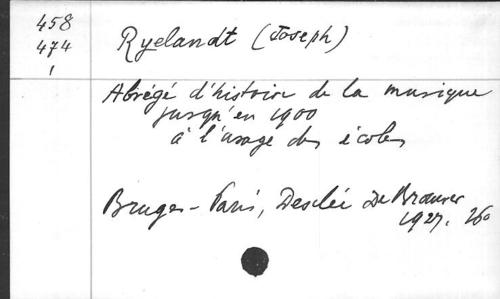 458
474
1
Ryelandt (Joseph)
Abrégé d'histoire de la musique
jusqu'en 1900
à l'usage des écoles
Bruges - Paris, Desclée De Brouwer
1927.